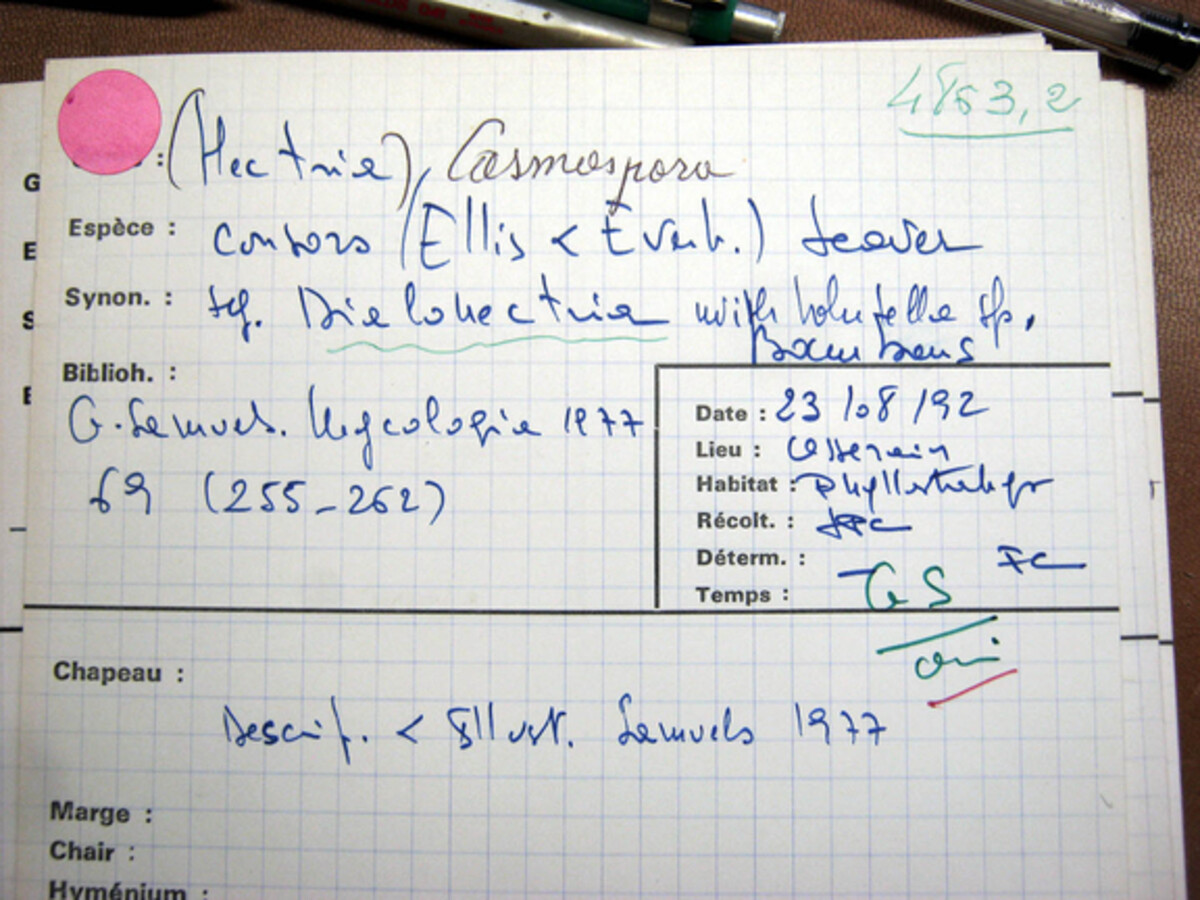 4853,2
: (Nectria), Cosmospora
G
Espèce : consors (Ellis & Everh.) Seaver
E
Synon. : sg. Dialonectria with Volutella sp.
S
Biblioh. :
E
G. Samuels. Mycologia 1977
69 (255-262)
Date : 23/08/92
Lieu :
Habitat : Phyllostachys
Récolt. :
Déterm. : FC
GS
Temps :
oui
Chapeau :
Descrip. & Illust. Samuels 1977
Marge :
Chair :
Hyménium :